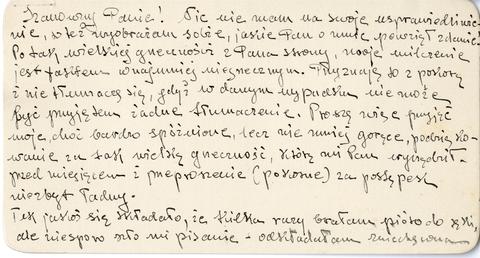 Szanowny Panie! Nic nie mam na swoje usprawiedliwie-
nie, to też wyobrażam sobie, jakie Pan o mnie powziął zdanie!
Po tak wielkiej grzeczności z Pana strony, moje milczenie
jest faktem conajmniej niegrzecznym. Przyznaję to z pokorą
i nie tłumaczę się, gdyż w danym wypadku nie może
być przyjętem żadne tłumaczenie. Proszę więc przyjąć
moje, choć bardzo spóźnione, lecz nie mniej gorące, podzięko-
wanie za tak wielką grzeczność, którą mi Pan wyrządził
przed miesiącem i przeproszenie (pokorne) za postępek
niezbyt ładny.
Tak jakoś się składało, że kilka razy brałam pióro do ręki,
ale niesporo szło mi pisanie - odkładałam zniechęcona